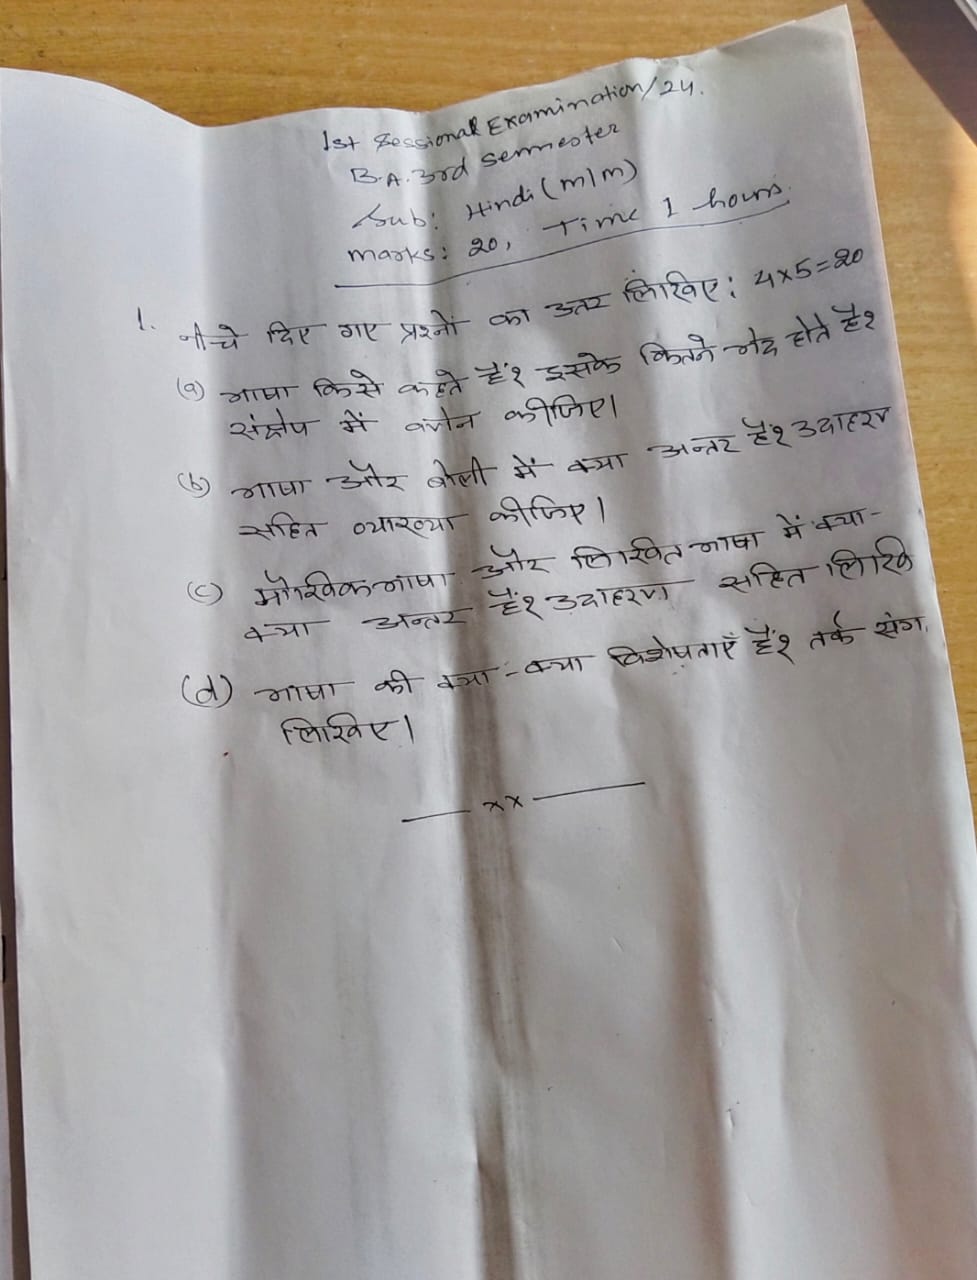 1st Sessional Examination/24.
B.A. 3rd Semester
Sub: Hindi (MIM)
Marks: 20, Time 1 hours.
1. नीचे दिए गए प्रश्नों का उत्तर लिखिए: 4x5=20
(a) भाषा किसे कहते हैं? इसके कितने भेद होते है?
संक्षेप में वर्णन कीजिए।
(b) भाषा और बोली में क्या अन्तर है? उदाहरण
सहित व्याख्या कीजिए।
(c) मौखिक भाषा और लिखित भाषा में क्या-
क्या अन्तर हैं? उदाहरण सहित लिखि
(d) भाषा की क्या-क्या विशेषताएँ हैं? तर्क संग.
लिखिए।
xx